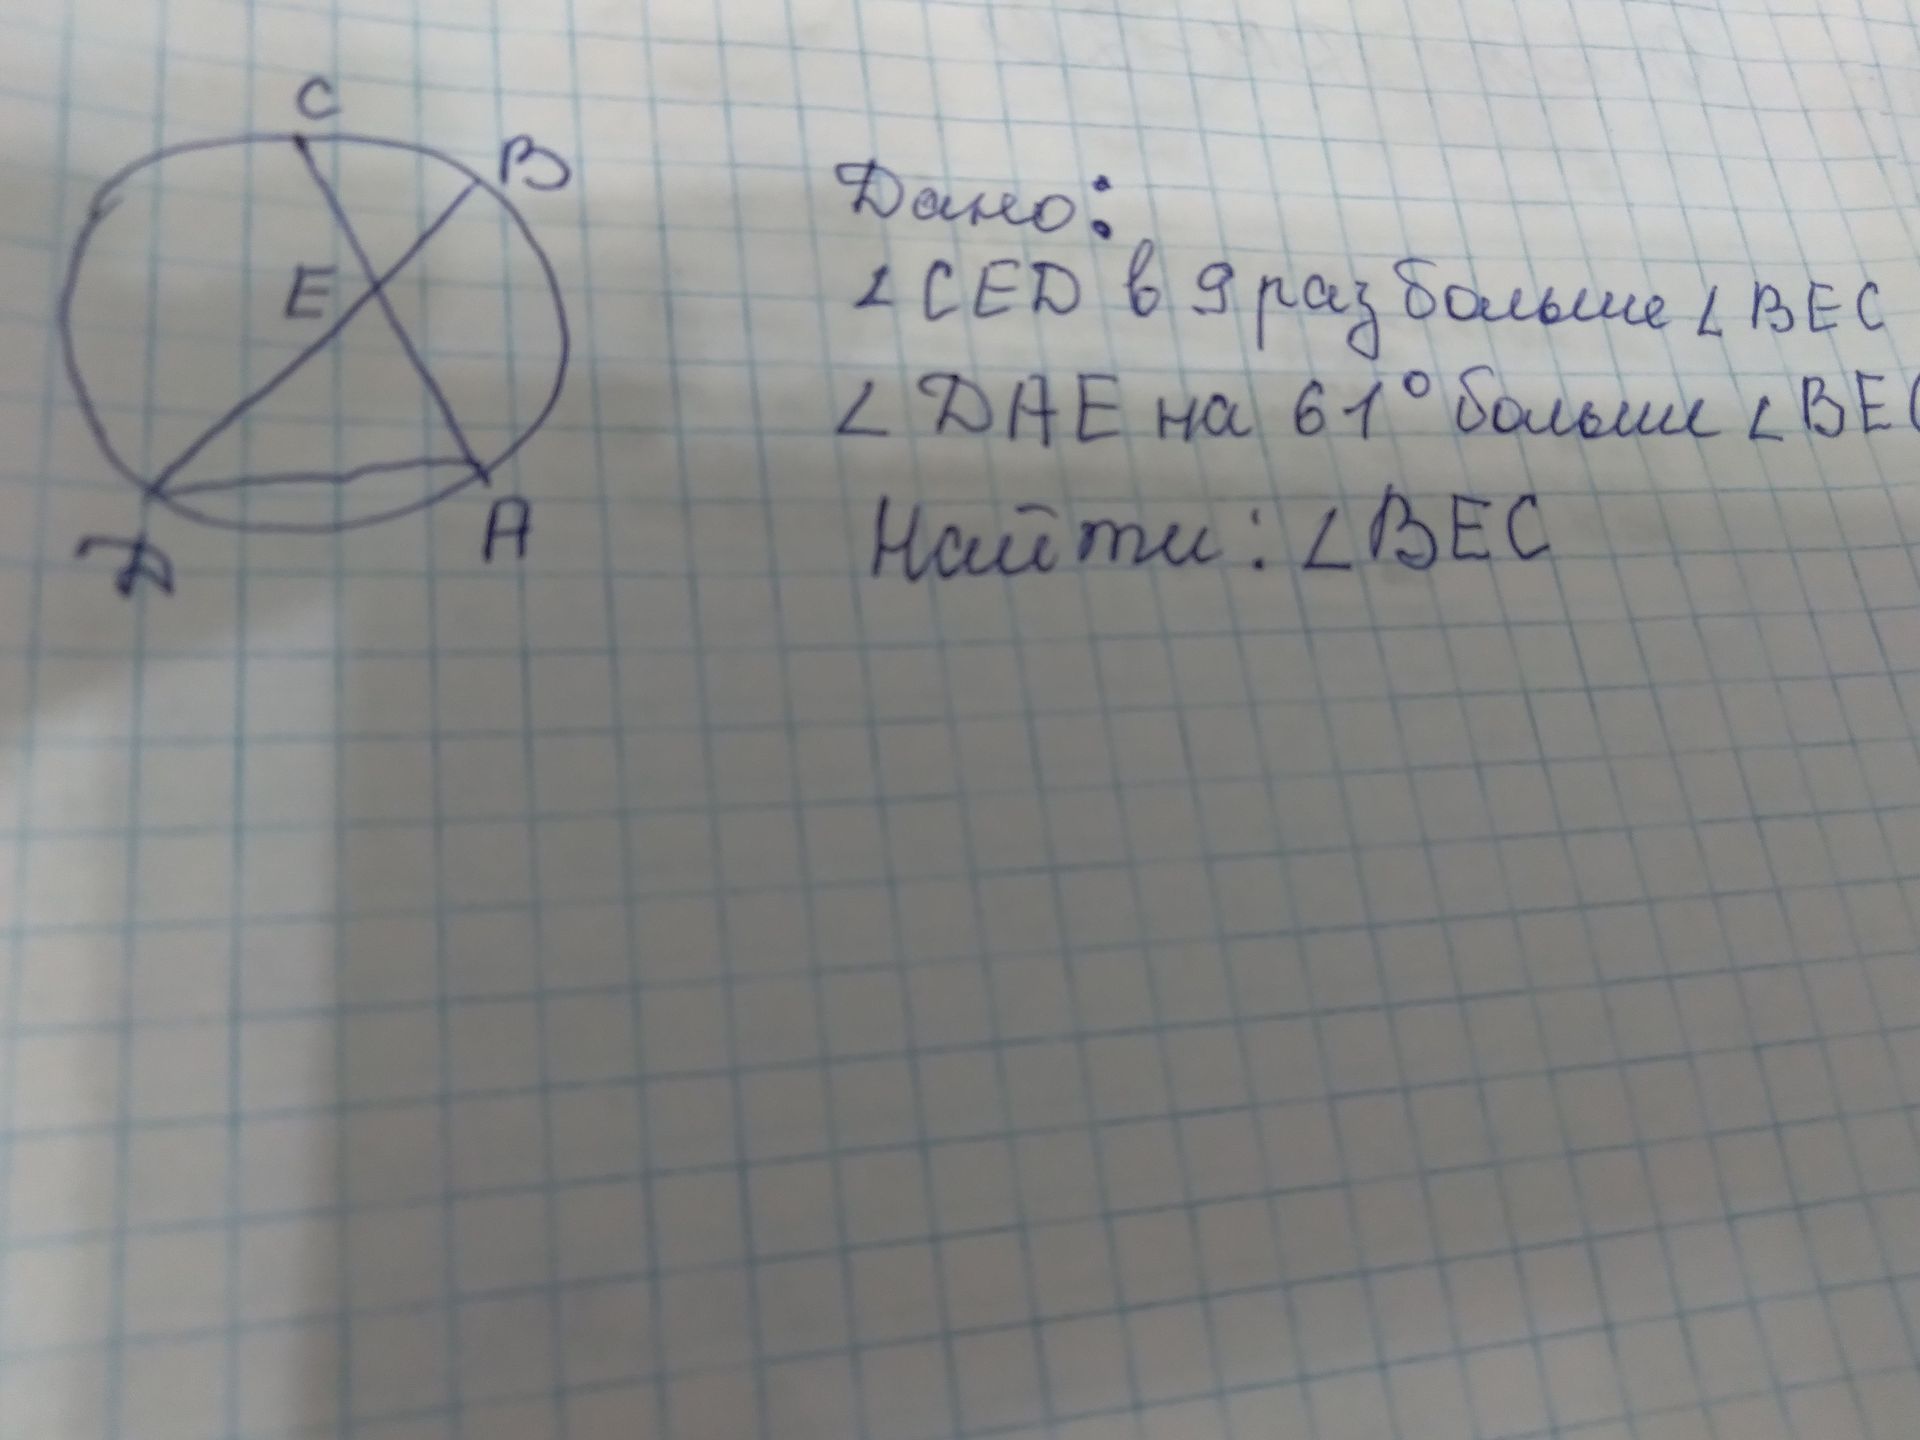 C
B
E
D
A
Дано:
∠CED в 9 раз больше ∠BEC
∠DAE на 61° больше ∠BEC
Найти: ∠BEC